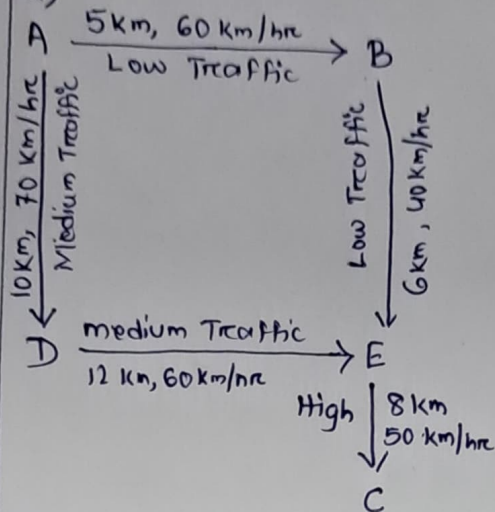 A
5km, 60 km/hr
Low Traffic
B
10km, 70 km/hr
Medium Traffic
Low Traffic
6km, 40km/hr
D
medium Traffic
12 km, 60km/hr
E
High
8km
50 km/hr
C